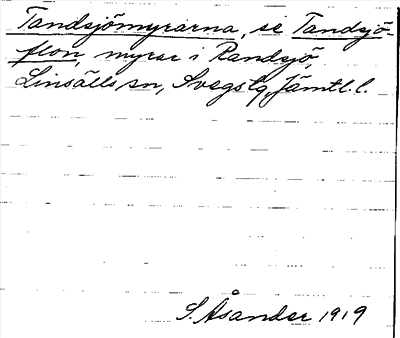 Tandsjömyrarna, se Tandsjö-
flon, myrar i Randsjö,
Linsälls sn, Svegs tg, Jämtl. l.
S. Åsander 1919